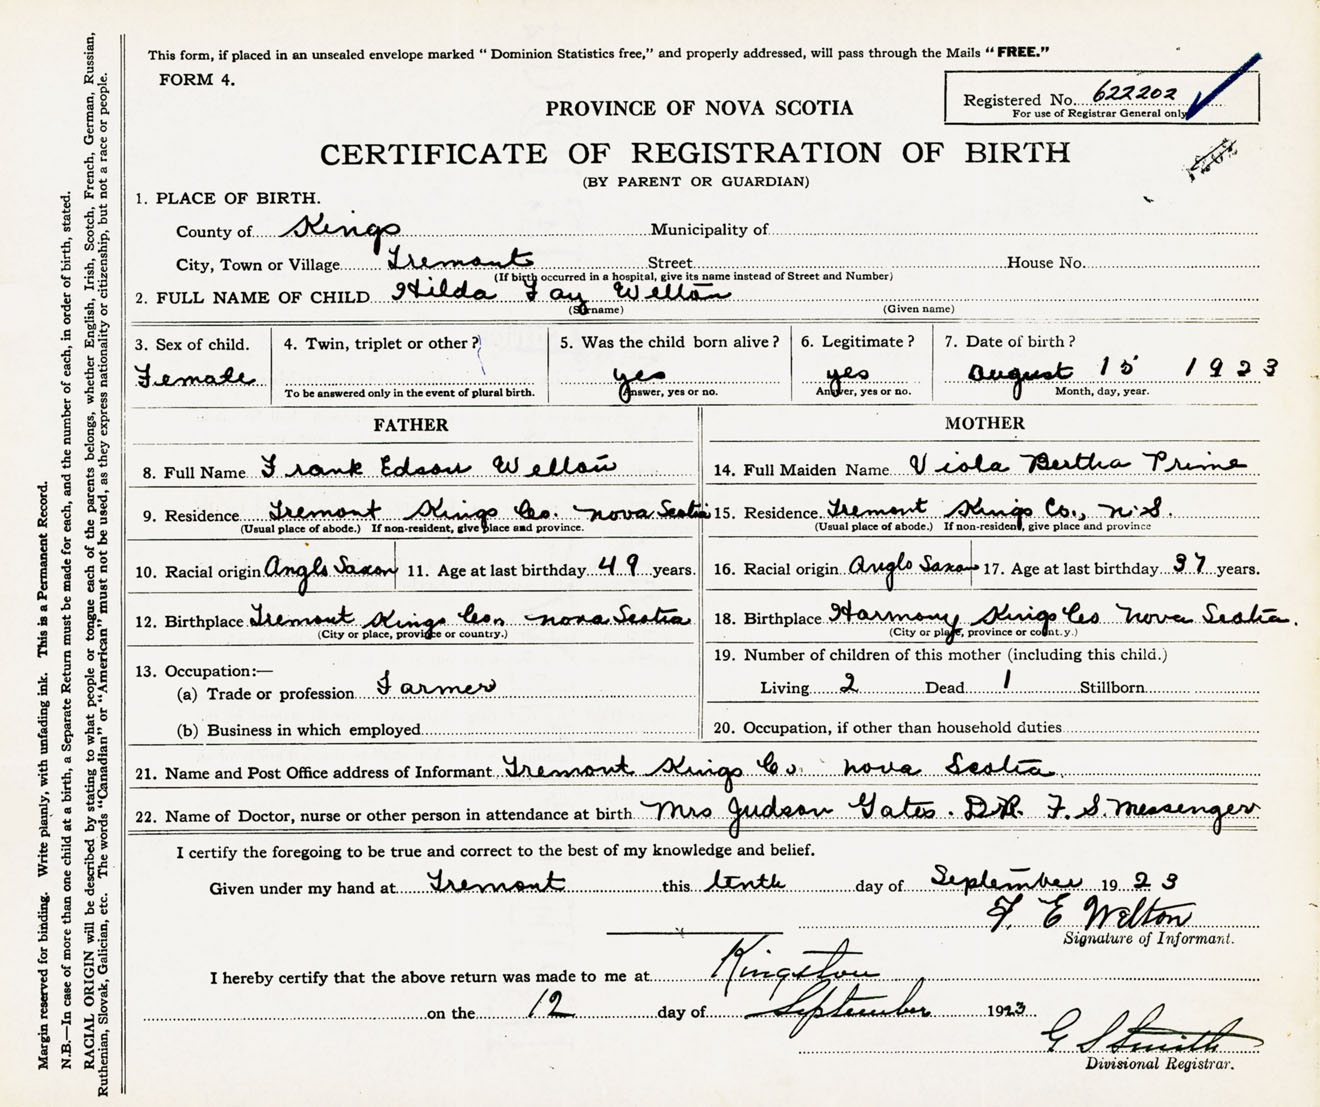 This form, if placed in an unsealed envelope marked "Dominion Statistics free," and properly addressed, will pass through the Mails "FREE."
FORM 4.
Registered No. 622202
For use of Registrar General only
PROVINCE OF NOVA SCOTIA
CERTIFICATE OF REGISTRATION OF BIRTH
(BY PARENT OR GUARDIAN)
1. PLACE OF BIRTH.
County of Kings Municipality of
City, Town or Village Tremont Street House No.
(If birth occurred in a hospital, give its name instead of Street and Number)
2. FULL NAME OF CHILD Hilda Fay Welton
(Surname) (Given name)
3. Sex of child. 4. Twin, triplet or other? 5. Was the child born alive? 6. Legitimate? 7. Date of birth?
Female yes yes August 15 1923
To be answered only in the event of plural birth. Answer, yes or no. Answer, yes or no. Month, day, year.
FATHER MOTHER
8. Full Name Frank Edson Welton 14. Full Maiden Name Viola Bertha Prime
9. Residence Tremont Kings Co. Nova Scotia 15. Residence Tremont Kings Co., N.S.
(Usual place of abode.) If non-resident, give place and province. (Usual place of abode.) If non-resident, give place and province
10. Racial origin Anglo Saxon 11. Age at last birthday 49 years. 16. Racial origin Anglo Saxon 17. Age at last birthday 37 years.
12. Birthplace Tremont Kings Co. Nova Scotia 18. Birthplace Harmony Kings Co Nova Scotia.
(City or place, province or country.) (City or place, province or count.y.)
13. Occupation:— 19. Number of children of this mother (including this child.)
(a) Trade or profession Farmer Living 2 Dead 1 Stillborn
(b) Business in which employed 20. Occupation, if other than household duties
21. Name and Post Office address of Informant Tremont Kings Co. Nova Scotia.
22. Name of Doctor, nurse or other person in attendance at birth Mrs Judson Gates. DR. F. S. Messenger
I certify the foregoing to be true and correct to the best of my knowledge and belief.
Given under my hand at Tremont this tenth day of September 1923
F. E Welton
Signature of Informant.
I hereby certify that the above return was made to me at Kingston
on the 12 day of September 1923
G S Smith
Divisional Registrar.
Margin reserved for binding. Write plainly, with unfading ink. This is a Permanent Record.
N.B.—In case of more than one child at a birth, a Separate Return must be made for each, and the number of each, in order of birth, stated.
RACIAL ORIGIN will be described by stating to what people or tongue each of the parents belongs, whether English, Irish, Scotch, French, German, Russian,
Ruthenian, Slovak, Galician, etc. The words "Canadian" or "American" must not be used, as they express nationality or citizenship, but not a race or people.